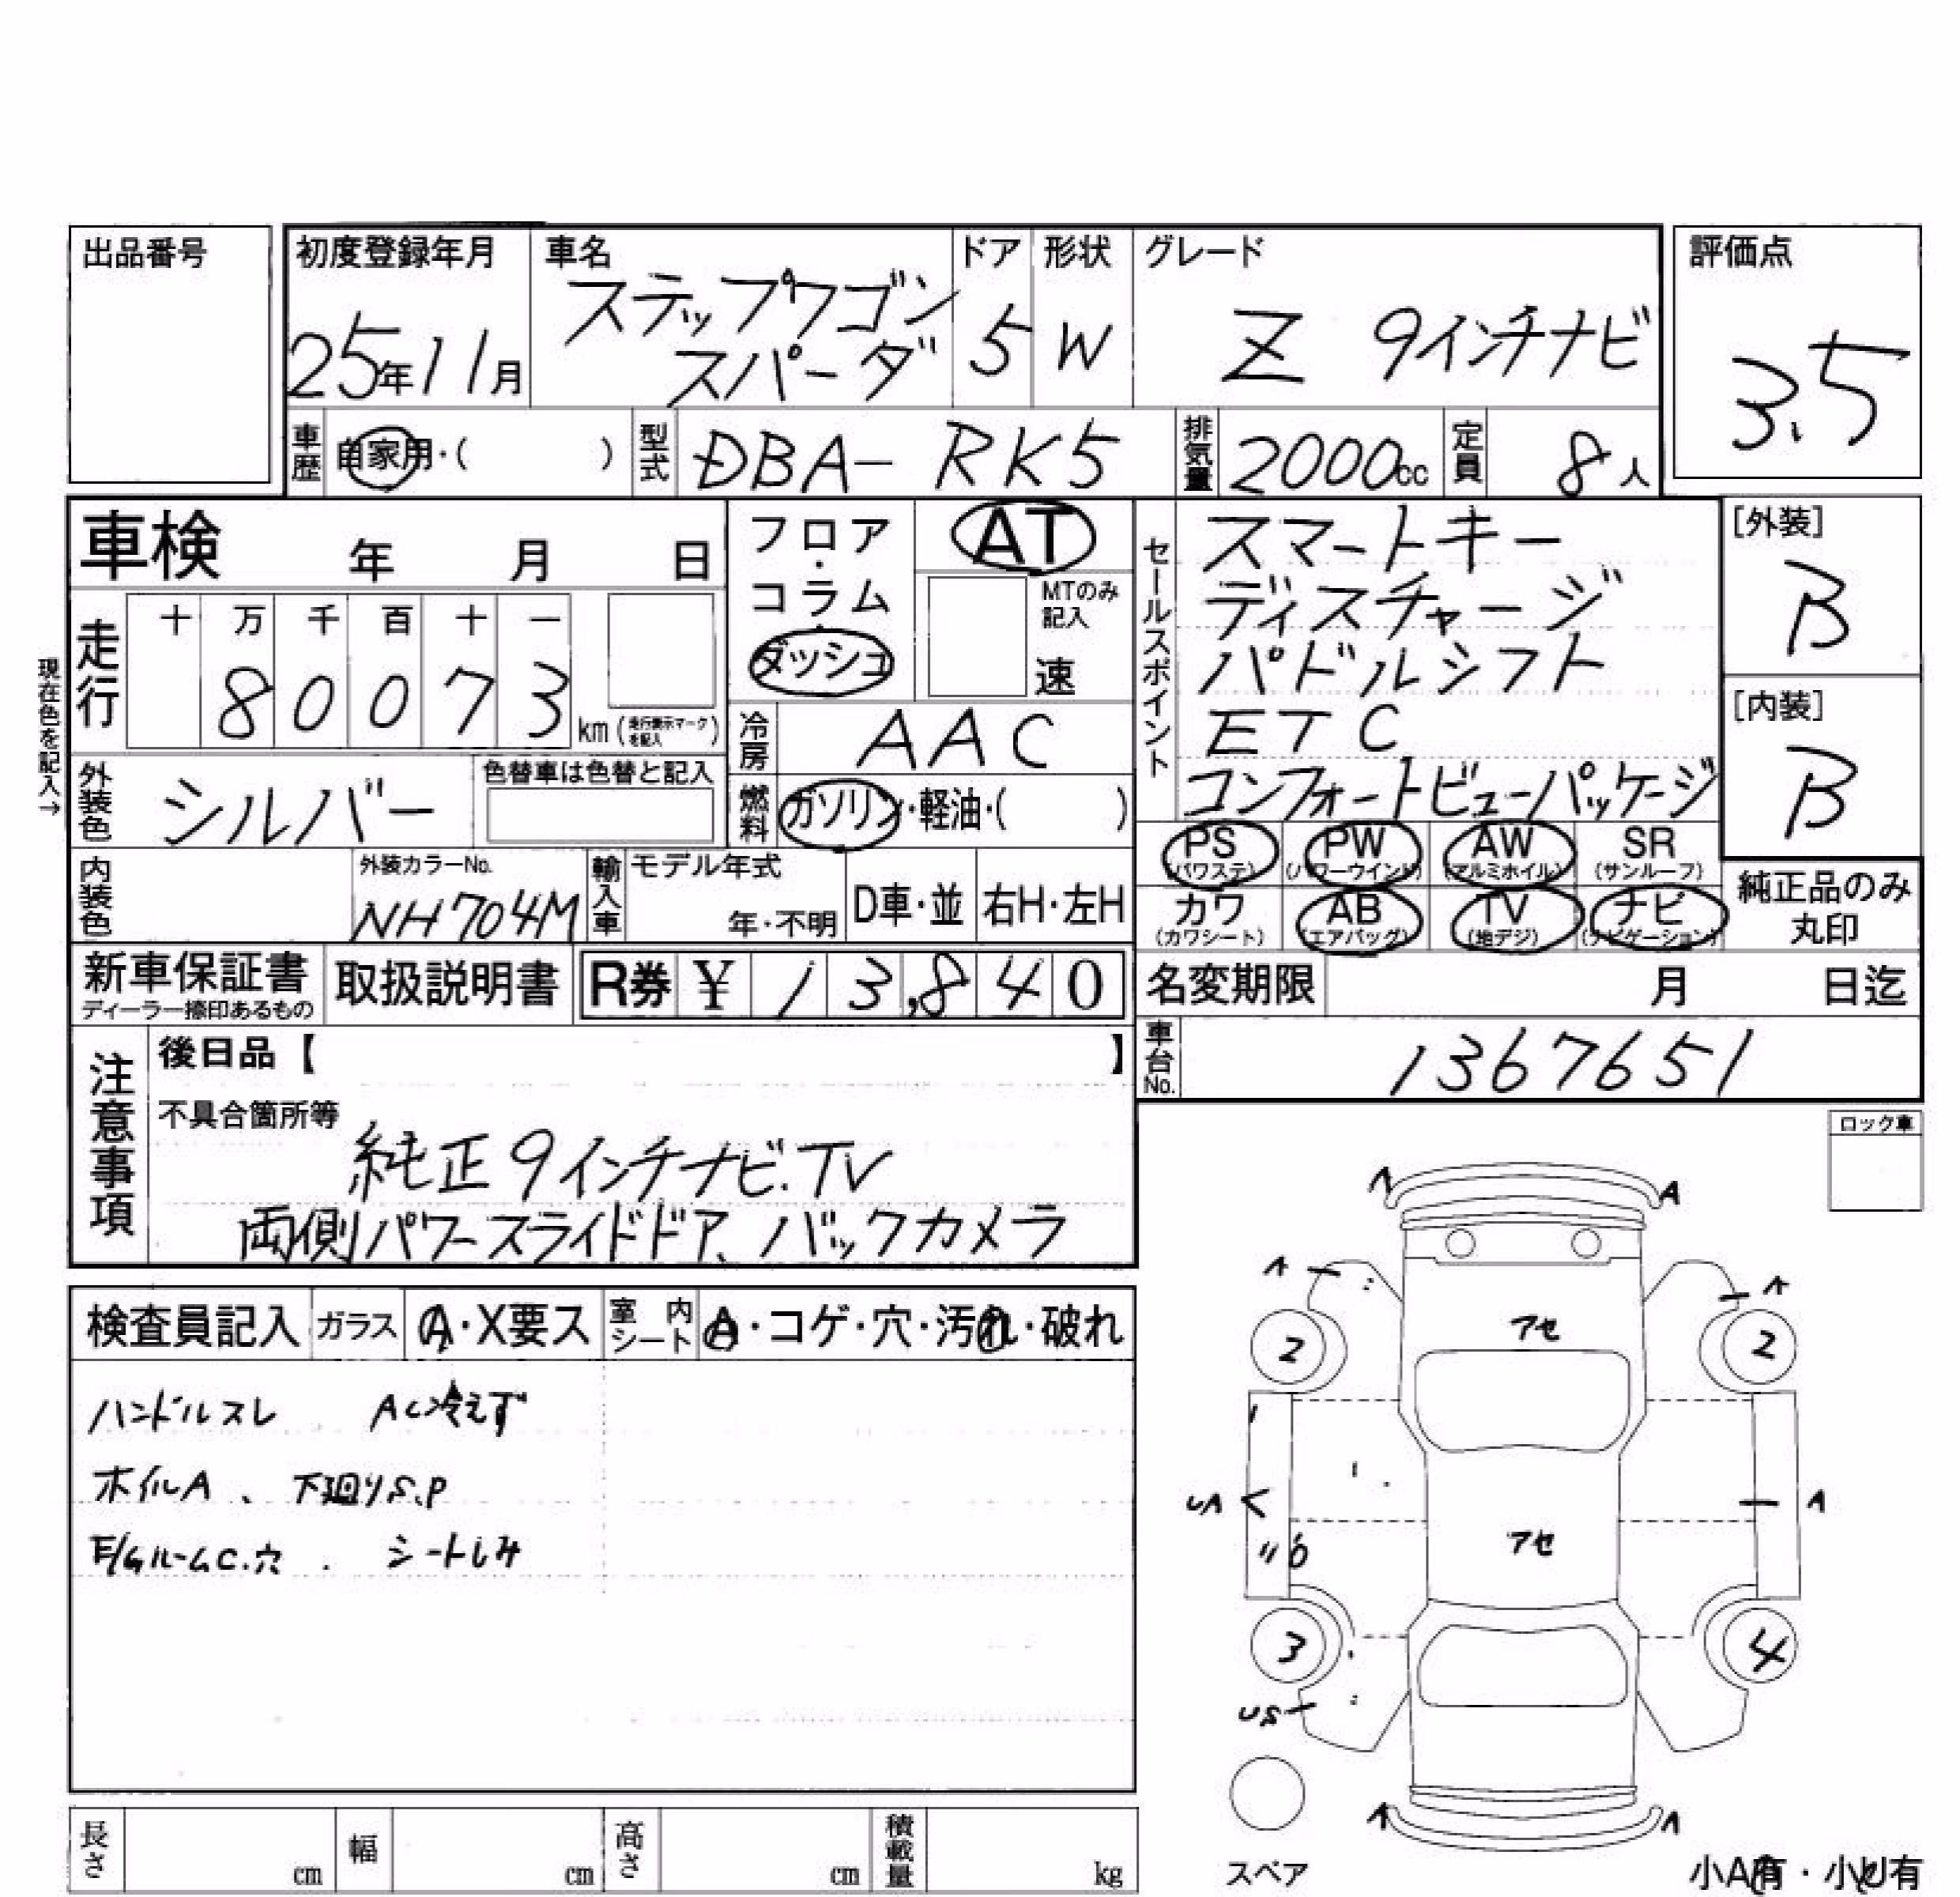 出品番号
初度登録年月 車名 ドア 形状 グレード 評価点
25年11月 ステップワゴン スパーダ 5 W Z 9インチナビ 3.5
車歴 自家用・( ) 型式 DBA-RK5 排気量 2000cc 定員 8人
車検 年 月 日
フロア・コラム・ダッシュ
AT
MTのみ記入
速
走行 十 万 千 百 十 一
8 0 0 7 3 km(走行表示マークを記入)
現在色を記入→
外装色 シルバー 色替車は色替と記入
冷房 AAC
燃料 ガソリン・軽油・( )
内装色 外装カラーNo. NH704M 輸入車 モデル年式 年・不明 D車・並 右H・左H
セールスポイント
スマートキー
ディスチャージ
パドルシフト
ETC
コンフォートビューパッケージ
[外装]
B
[内装]
B
PS(パワステ) PW(パワーウインド) AW(アルミホイル) SR(サンルーフ)
カワ(カワシート) AB(エアバッグ) TV(地デジ) ナビ(ナビゲーション)
純正品のみ丸印
新車保証書 ディーラー捺印あるもの 取扱説明書 R券 ¥13,840
名変期限 月 日迄
車台No. 1367651
注意事項
後日品【 】
不具合箇所等
純正9インチナビ.TV
両側パワースライドドア、バックカメラ
検査員記入 ガラス A・X要ス 室内シート A・コゲ・穴・汚れ・破れ
ハンドルスレ AC冷えず
ホイルA、下廻りS.P
E/GルームC.穴. シートしみ
ロック車
A A
A A
アセ
2 2
UA A
アセ
3 4
US
A A
スペア
小A有・小U有
長さ cm 幅 cm 高さ cm 積載量 kg